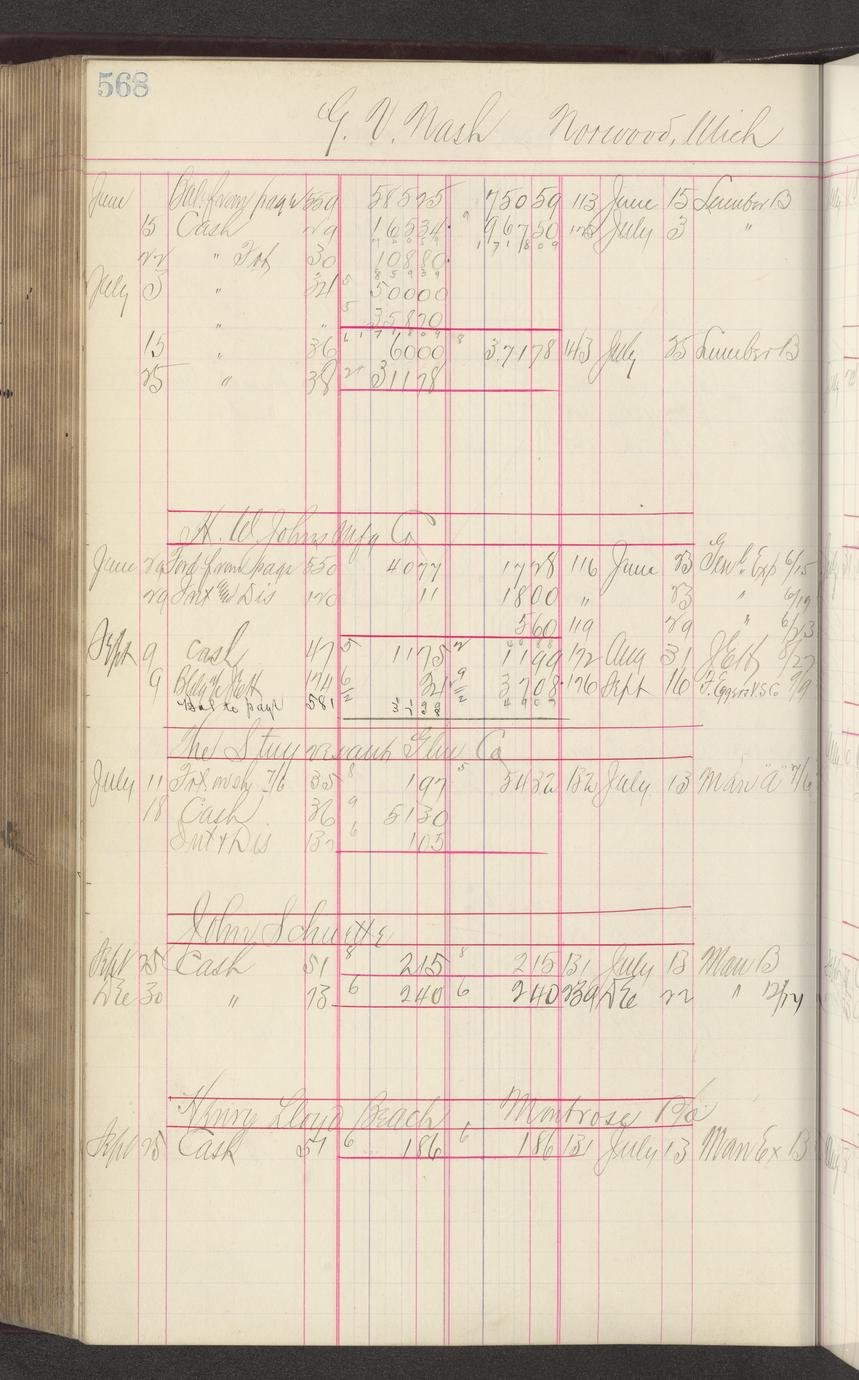 568
G. V. Nash Norwood, Mich
June Bal. from page 559 58525 75059 113 June 15 Lumber B
15 Cash 29 16534 96750 125 July 3 "
171809
22 " Frt 30 10880
July 3 " 34 50000
" " 35870
15 " 36 6000 37178 143 July 25 Lumber B
25 " 38 31178
H. W. Johns Mfg Co
June 29 Ford from page 550 4077 1728 116 June 23 Genl. Exp 6/15
29 Int & Dis 120 11 1800 " 23 " 6/19
560 119 29 " 6/23
Sept 9 Cash 47 1175 1199 172 Aug 31 8/27
9 174 34 3708 176 Sept 16 F. Eggers V.S Co 9/9
Bal to page 581 3798 4907
The Stuyvesant Glue Co
July 11 Frt. on sh 7/6 35 197 5432 132 July 13 Man "A" 7/6
18 Cash 36 5130
Int & Dis 132 105
John Schuette
Sept 25 Cash 51 215 215 131 July 13 Man B
Dec 30 " 73 240 240 239 Dec 22 " 12/14
Henry Lloyd Beach Montrose Pa
Sept 25 Cash 51 186 186 131 July 13 Man Ex B